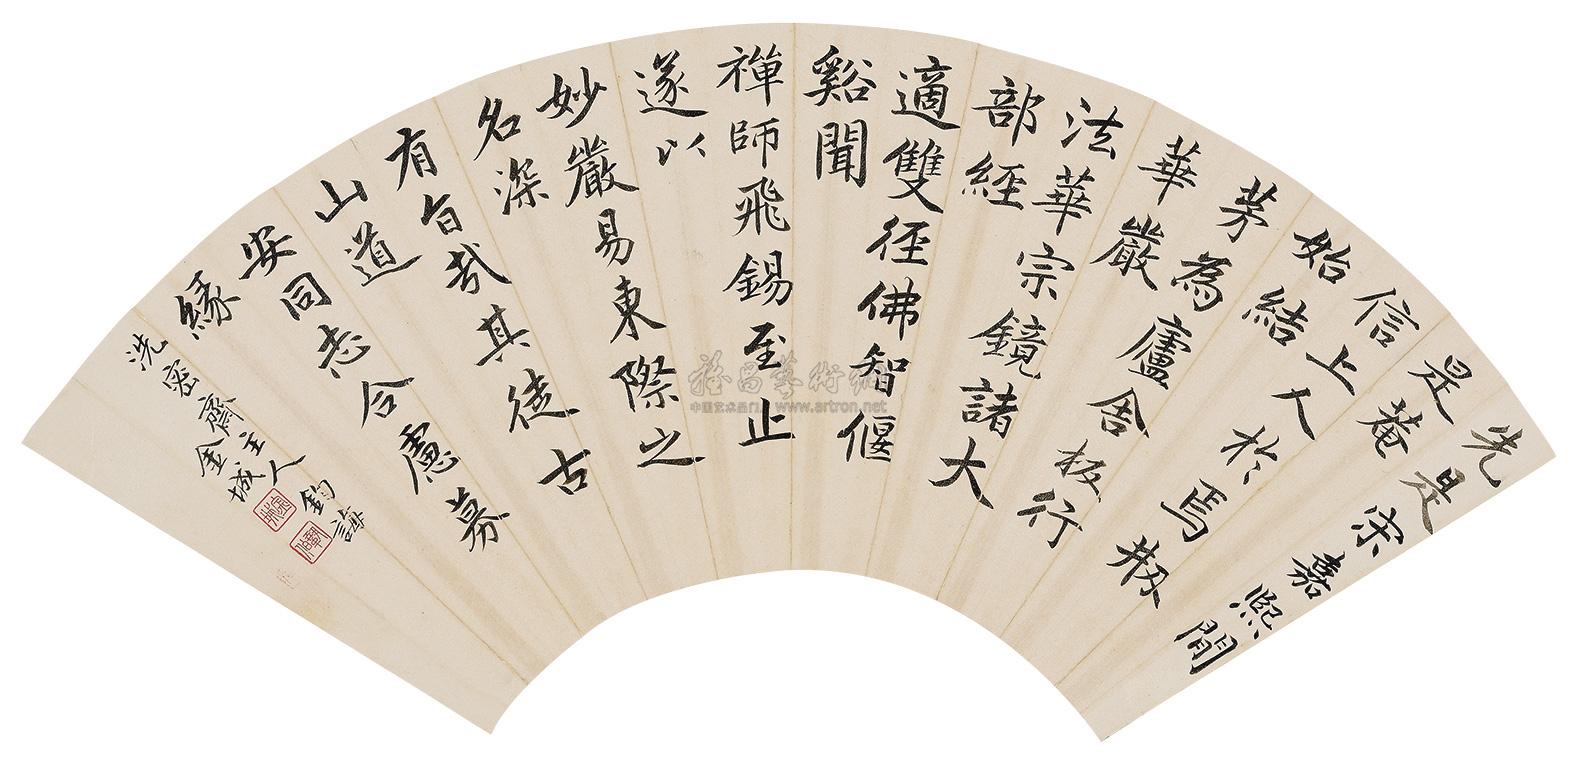 先是宋嘉熙間
是菴
信上人於焉刱
始結
茅為廬舍板行
華嚴
法華宗鏡諸大
部經
適雙徑佛智偃
谿聞
禪師飛錫至止
遂以
妙嚴易東際之
名深
有旨哉其徒古
山道
安同志合慮募
緣
洗密齋主人鈞誨
金城
雅昌藝術網
www.artron.net